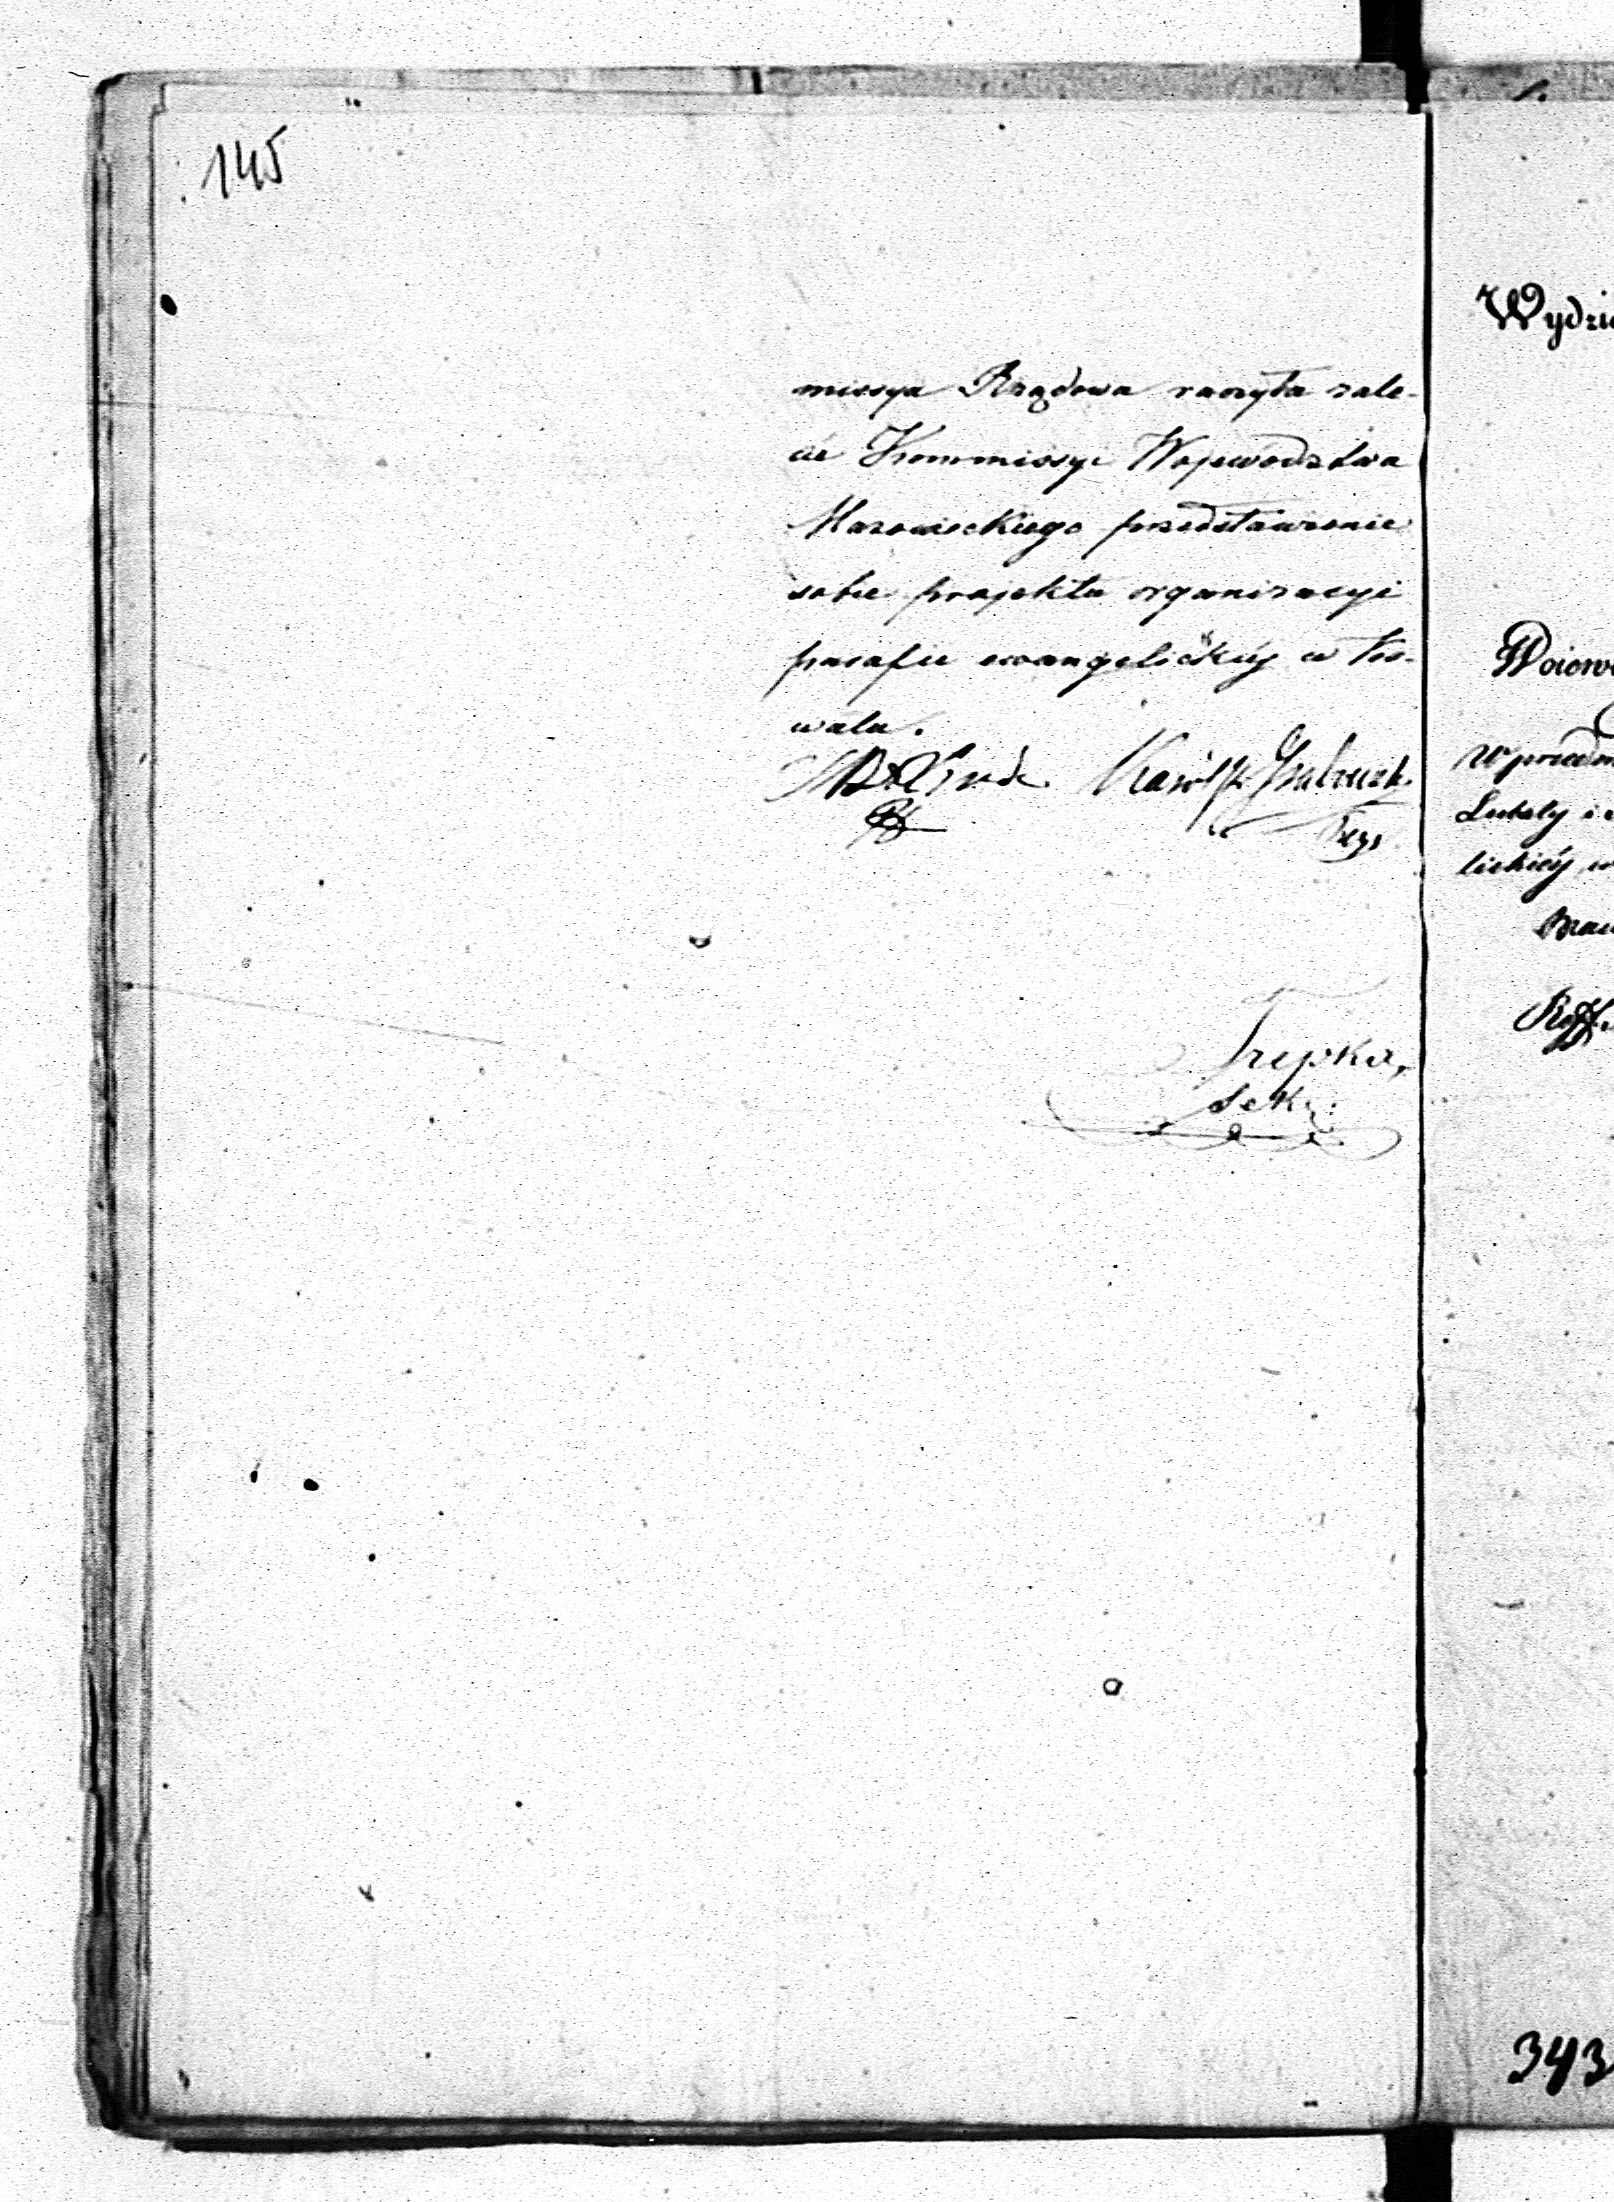 145
missya Rządowa raczyła zale-
cić Kommissyi Wojewodztwa
Mazowieckiego przedstawienie
sobie projektu organizacyi
parafii ewangelickiéj w Ko-
walu.
Karól
Trepka,
Sekr:
Wydzi
Woiew
W przedm
lickiéj w
343